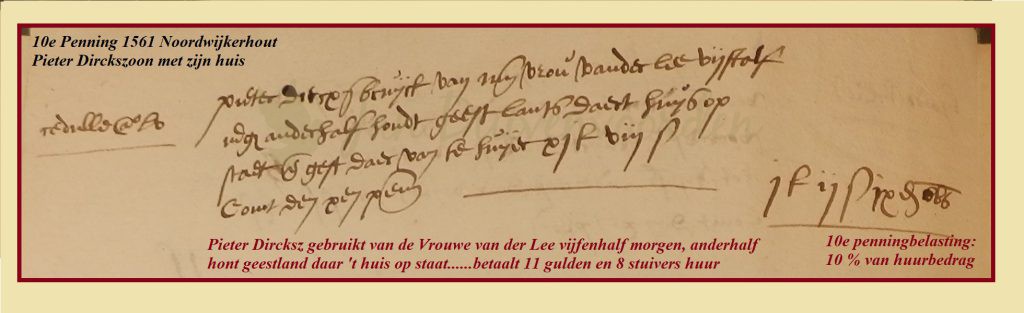 10e Penning 1561 Noordwijkerhout
Pieter Dirckszoon met zijn huis
pieter dircxz bruyct van mijn vrou vander lee vijftalf
anderhalf hondt geest lants daert huys op
staet geeft daer van te huyer xj £ viij s
Comt den xen pen
j £ ij s ix d obs
Pieter Dircksz gebruikt van de Vrouwe van der Lee vijfenhalf morgen, anderhalf
hont geestland daar 't huis op staat......betaalt 11 gulden en 8 stuivers huur
10e penningbelasting:
10 % van huurbedrag